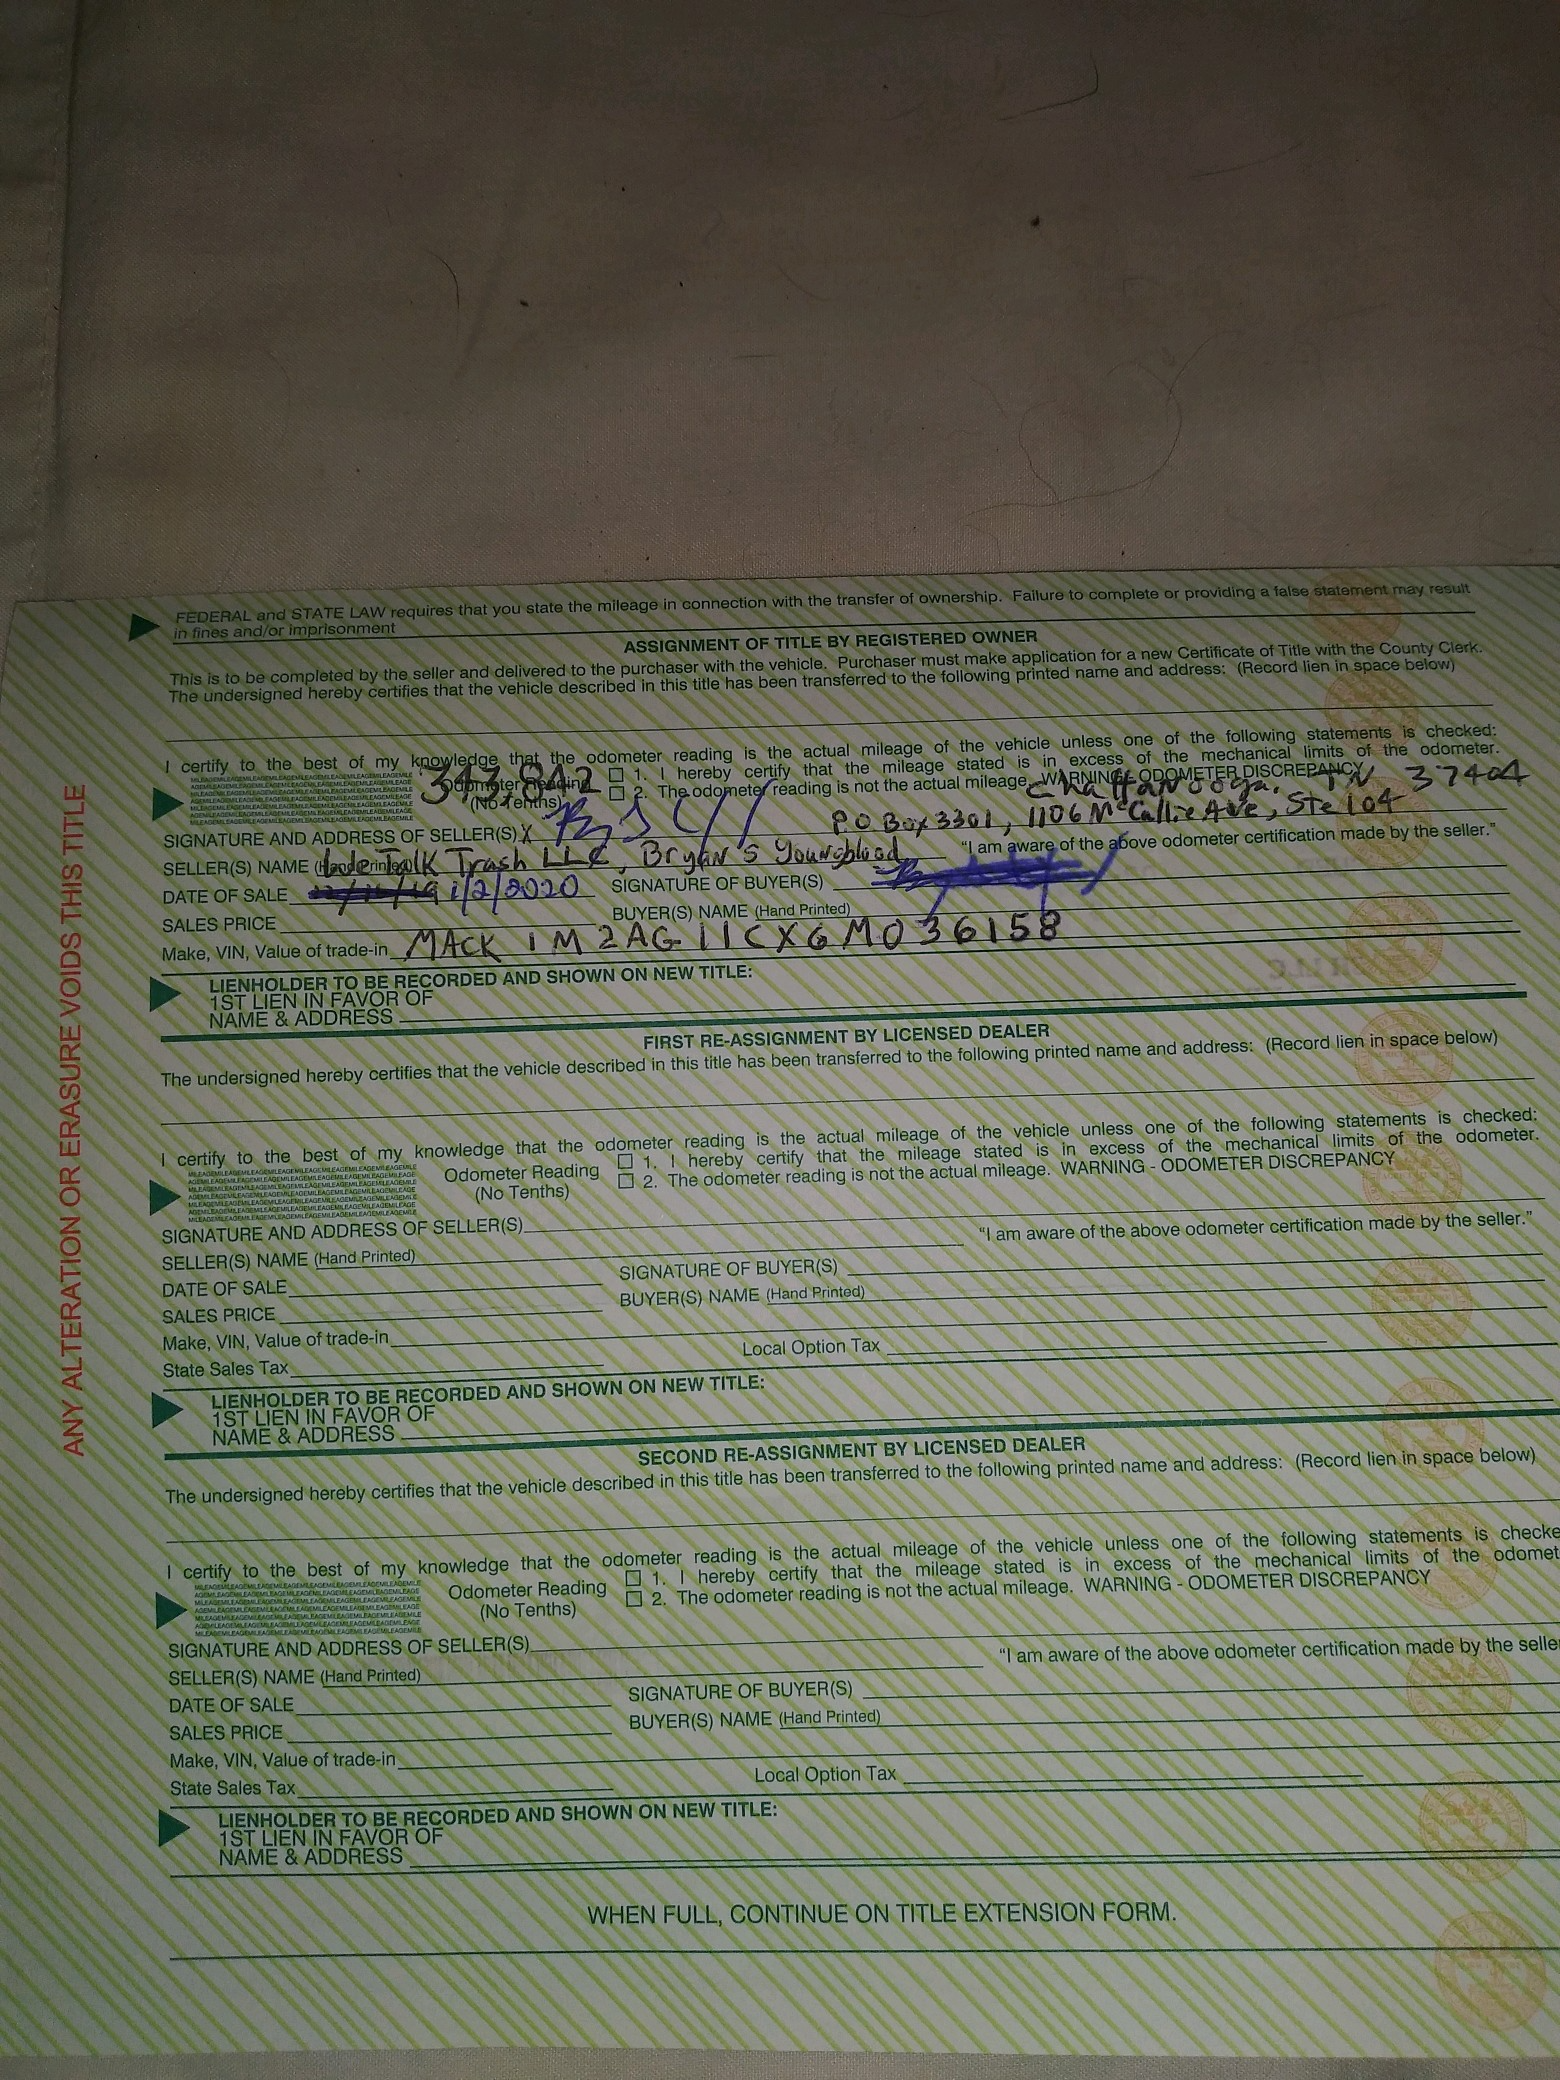 FEDERAL and STATE LAW requires that you state the mileage in connection with the transfer of ownership. Failure to complete or providing a false statement may result
in fines and/or imprisonment
ASSIGNMENT OF TITLE BY REGISTERED OWNER
This is to be completed by the seller and delivered to the purchaser with the vehicle. Purchaser must make application for a new Certificate of Title with the County Clerk.
The undersigned hereby certifies that the vehicle described in this title has been transferred to the following printed name and address: (Record lien in space below)
I certify to the best of my knowledge that the odometer reading is the actual mileage of the vehicle unless one of the following statements is checked:
343,842 Odometer Reading ☐ 1. I hereby certify that the mileage stated is in excess of the mechanical limits of the odometer.
(No Tenths) ☐ 2. The odometer reading is not the actual mileage. WARNING - ODOMETER DISCREPANCY
Chattanooga, TN 37404
SIGNATURE AND ADDRESS OF SELLER(S) X P.O Box 3301, 1106 McCallie Ave, Ste 104
SELLER(S) NAME (Hand Printed) We Talk Trash LLC, Bryan S Youngblood "I am aware of the above odometer certification made by the seller."
DATE OF SALE 1/2/2020 SIGNATURE OF BUYER(S)
SALES PRICE BUYER(S) NAME (Hand Printed)
Make, VIN, Value of trade-in MACK 1M2AG11CX6M036158
LIENHOLDER TO BE RECORDED AND SHOWN ON NEW TITLE:
1ST LIEN IN FAVOR OF
NAME & ADDRESS
FIRST RE-ASSIGNMENT BY LICENSED DEALER
The undersigned hereby certifies that the vehicle described in this title has been transferred to the following printed name and address: (Record lien in space below)
I certify to the best of my knowledge that the odometer reading is the actual mileage of the vehicle unless one of the following statements is checked:
Odometer Reading ☐ 1. I hereby certify that the mileage stated is in excess of the mechanical limits of the odometer.
(No Tenths) ☐ 2. The odometer reading is not the actual mileage. WARNING - ODOMETER DISCREPANCY
SIGNATURE AND ADDRESS OF SELLER(S)
SELLER(S) NAME (Hand Printed) "I am aware of the above odometer certification made by the seller."
DATE OF SALE SIGNATURE OF BUYER(S)
SALES PRICE BUYER(S) NAME (Hand Printed)
Make, VIN, Value of trade-in
State Sales Tax Local Option Tax
LIENHOLDER TO BE RECORDED AND SHOWN ON NEW TITLE:
1ST LIEN IN FAVOR OF
NAME & ADDRESS
SECOND RE-ASSIGNMENT BY LICENSED DEALER
The undersigned hereby certifies that the vehicle described in this title has been transferred to the following printed name and address: (Record lien in space below)
I certify to the best of my knowledge that the odometer reading is the actual mileage of the vehicle unless one of the following statements is checke
Odometer Reading ☐ 1. I hereby certify that the mileage stated is in excess of the mechanical limits of the odomet
(No Tenths) ☐ 2. The odometer reading is not the actual mileage. WARNING - ODOMETER DISCREPANCY
SIGNATURE AND ADDRESS OF SELLER(S)
SELLER(S) NAME (Hand Printed) "I am aware of the above odometer certification made by the selle
DATE OF SALE SIGNATURE OF BUYER(S)
SALES PRICE BUYER(S) NAME (Hand Printed)
Make, VIN, Value of trade-in
State Sales Tax Local Option Tax
LIENHOLDER TO BE RECORDED AND SHOWN ON NEW TITLE:
1ST LIEN IN FAVOR OF
NAME & ADDRESS
WHEN FULL, CONTINUE ON TITLE EXTENSION FORM.
ANY ALTERATION OR ERASURE VOIDS THIS TITLE